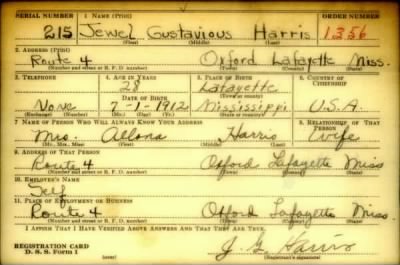 SERIAL NUMBER 1. NAME (Print) ORDER NUMBER
215 Jewel Gustavious Harris 1356
(First) (Middle) (Last)
2. ADDRESS (Print)
Route 4 Oxford Lafayette Miss.
(Number and street or R. F. D. number) (Town) (County) (State)
3. TELEPHONE 4. AGE IN YEARS 5. PLACE OF BIRTH 6. COUNTRY OF CITIZENSHIP
28 Lafayette
DATE OF BIRTH (Town or county)
None 7-1-1912 Mississippi U.S.A.
(Exchange) (Number) (Mo.) (Day) (Yr.) (State or country)
7. NAME OF PERSON WHO WILL ALWAYS KNOW YOUR ADDRESS 8. RELATIONSHIP OF THAT PERSON
Mrs. Allona Harris Wife
(Mr., Mrs., Miss) (First) (Middle) (Last)
9. ADDRESS OF THAT PERSON
Route 4 Oxford Lafayette Miss
(Number and street or R. F. D. number) (Town) (County) (State)
10. EMPLOYER'S NAME
Self
11. PLACE OF EMPLOYMENT OR BUSINESS
Route 4 Oxford Lafayette Miss.
(Number and street or R. F. D. number) (Town) (County) (State)
I AFFIRM THAT I HAVE VERIFIED ABOVE ANSWERS AND THAT THEY ARE TRUE.
REGISTRATION CARD
D. S. S. Form 1 J. G. Harris
(over) (Registrant's signature)